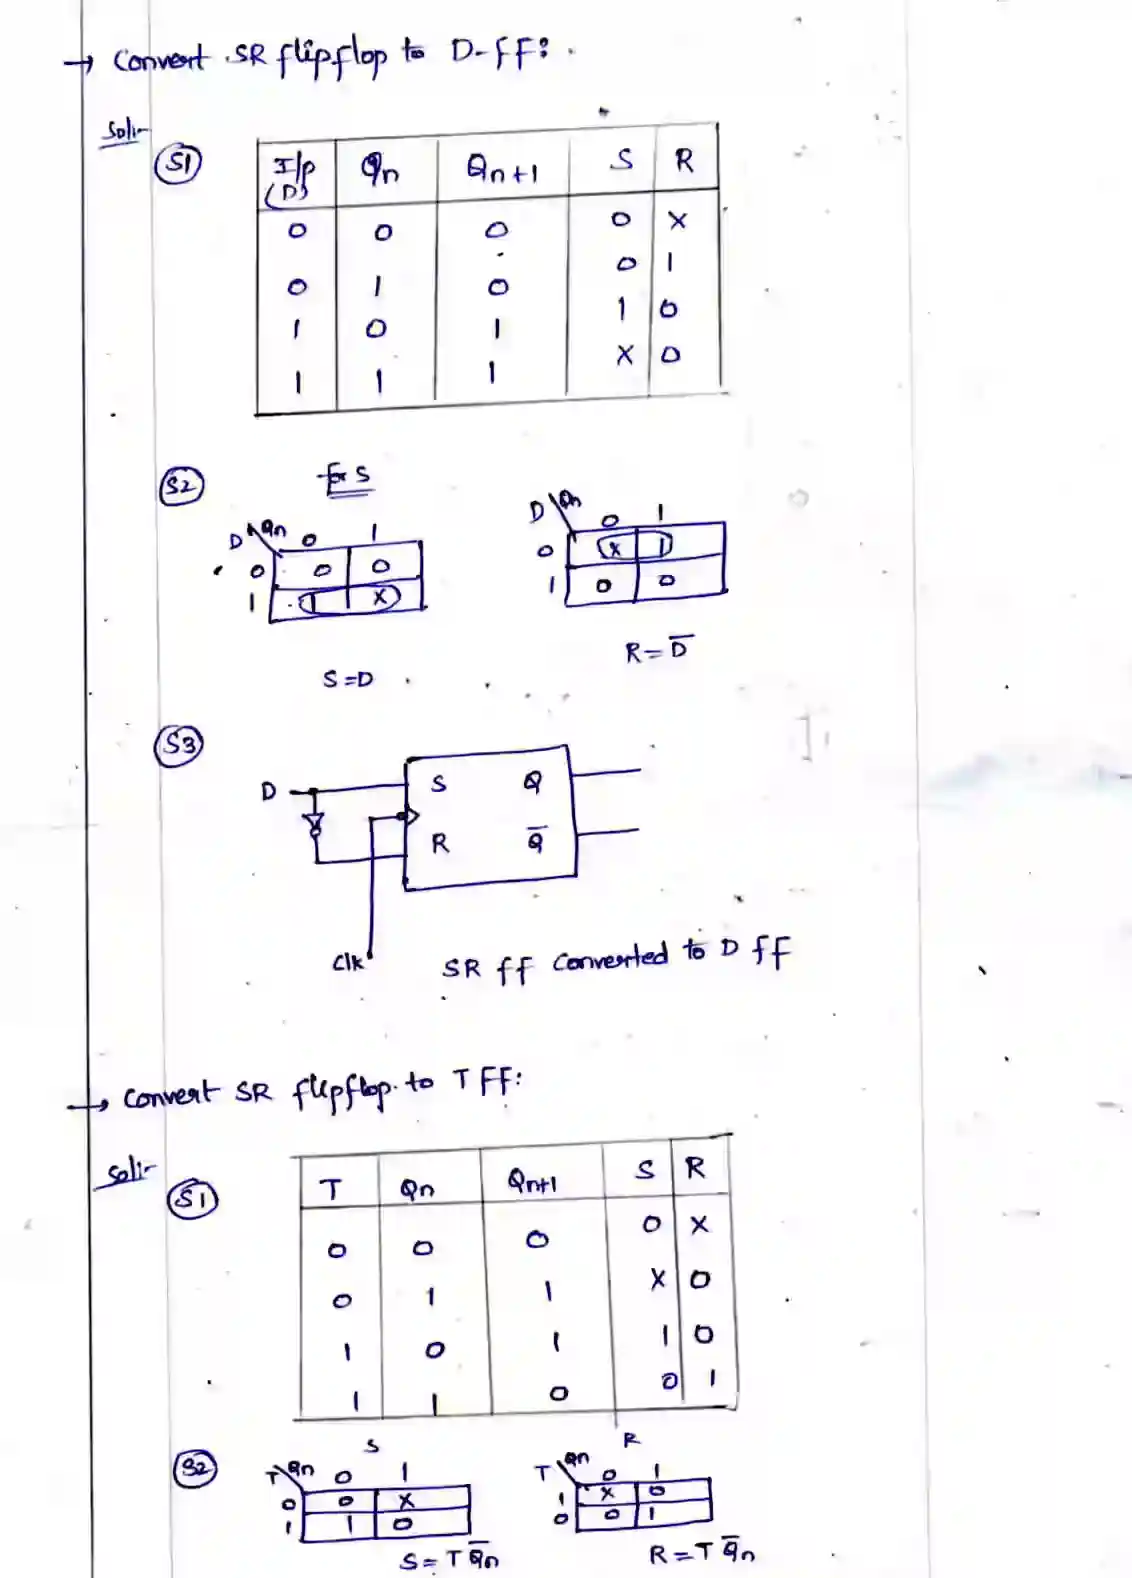 → Convert SR flipflop to D-ff:
Sol:-
S1
I/p (D) Qn Qn+1 S R
0 0 0 0 X
0 1 0 0 1
1 0 1 1 0
1 1 1 X 0
S2
for S
D Qn 0 1
0 0 0
1 1 X
S=D
D Qn 0 1
0 X 1
1 0 0
R=D̅
S3
D S Q
R Q̅
Clk
SR ff Converted to D ff
→ Convert SR flipflop to T FF:
Sol:-
S1
T Qn Qn+1 S R
0 0 0 0 X
0 1 1 X 0
1 0 1 1 0
1 1 0 0 1
S2
S
T Qn 0 1
0 0 X
1 1 0
S=T Q̅n
R
T Qn 0 1
1 X 0
0 0 1
R=T Q̅n